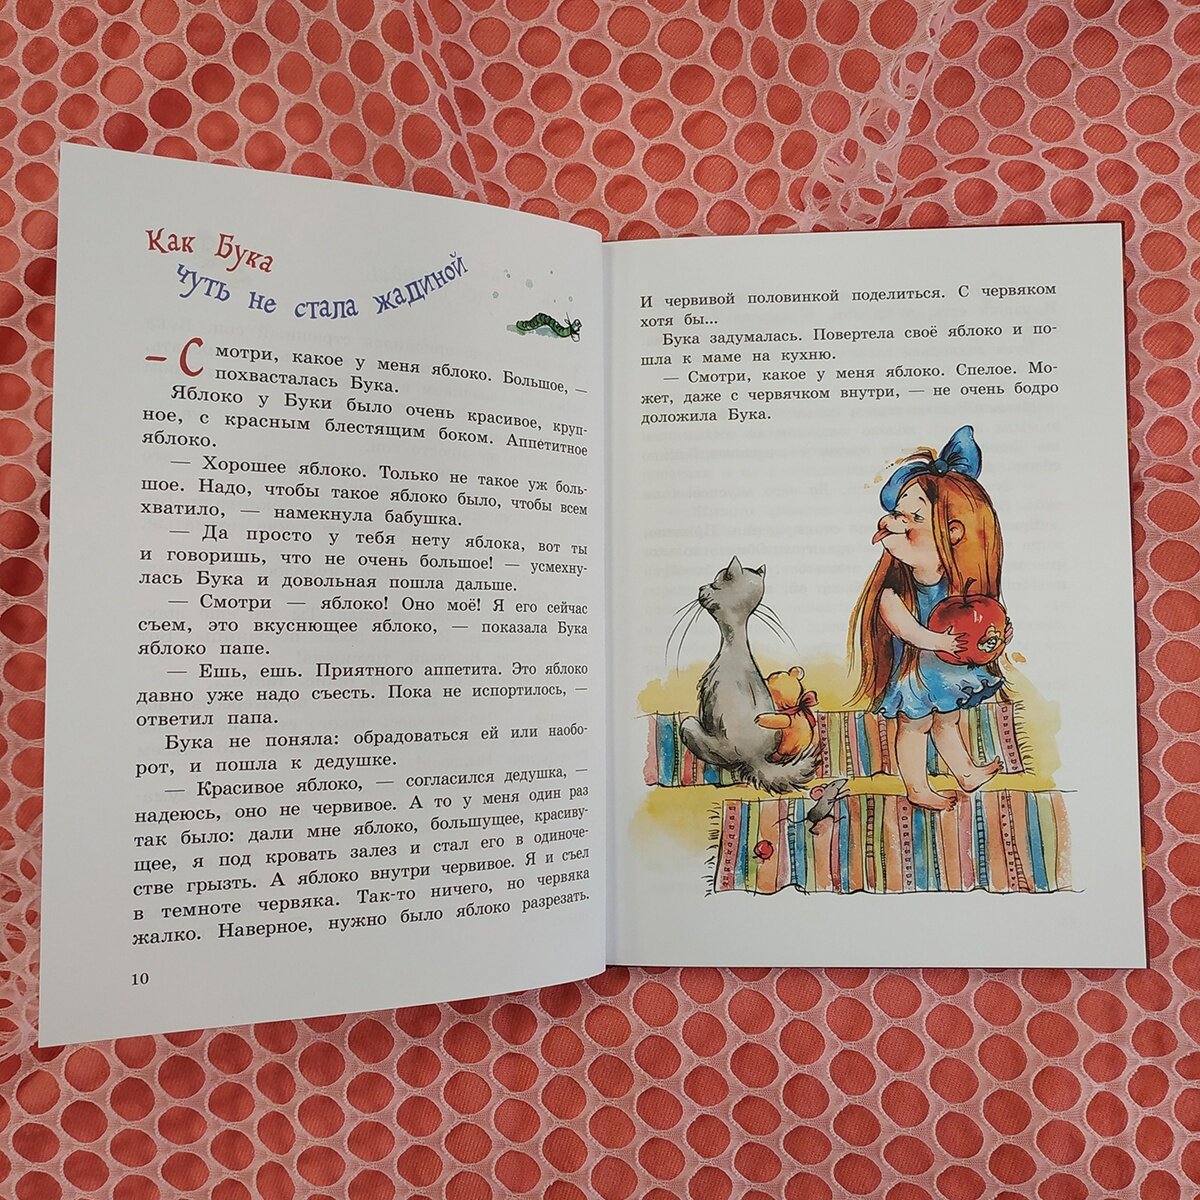 Как Бука
чуть не стала жадиной
— Смотри, какое у меня яблоко. Большое, —
похвасталась Бука.
Яблоко у Буки было очень красивое, круп-
ное, с красным блестящим боком. Аппетитное
яблоко.
— Хорошее яблоко. Только не такое уж боль-
шое. Надо, чтобы такое яблоко было, чтобы всем
хватило, — намекнула бабушка.
— Да просто у тебя нету яблока, вот ты
и говоришь, что не очень большое! — усмехну-
лась Бука и довольная пошла дальше.
— Смотри — яблоко! Оно моё! Я его сейчас
съем, это вкуснющее яблоко, — показала Бука
яблоко папе.
— Ешь, ешь. Приятного аппетита. Это яблоко
давно уже надо съесть. Пока не испортилось, —
ответил папа.
Бука не поняла: обрадоваться ей или наобо-
рот, и пошла к дедушке.
— Красивое яблоко, — согласился дедушка, —
надеюсь, оно не червивое. А то у меня один раз
так было: дали мне яблоко, большущее, красиву-
щее, я под кровать залез и стал его в одиноче-
стве грызть. А яблоко внутри червивое. Я и съел
в темноте червяка. Так-то ничего, но червяка
жалко. Наверное, нужно было яблоко разрезать.
10
И червивой половинкой поделиться. С червяком
хотя бы...
Бука задумалась. Повертела своё яблоко и по-
шла к маме на кухню.
— Смотри, какое у меня яблоко. Спелое. Мо-
жет, даже с червячком внутри, — не очень бодро
доложила Бука.